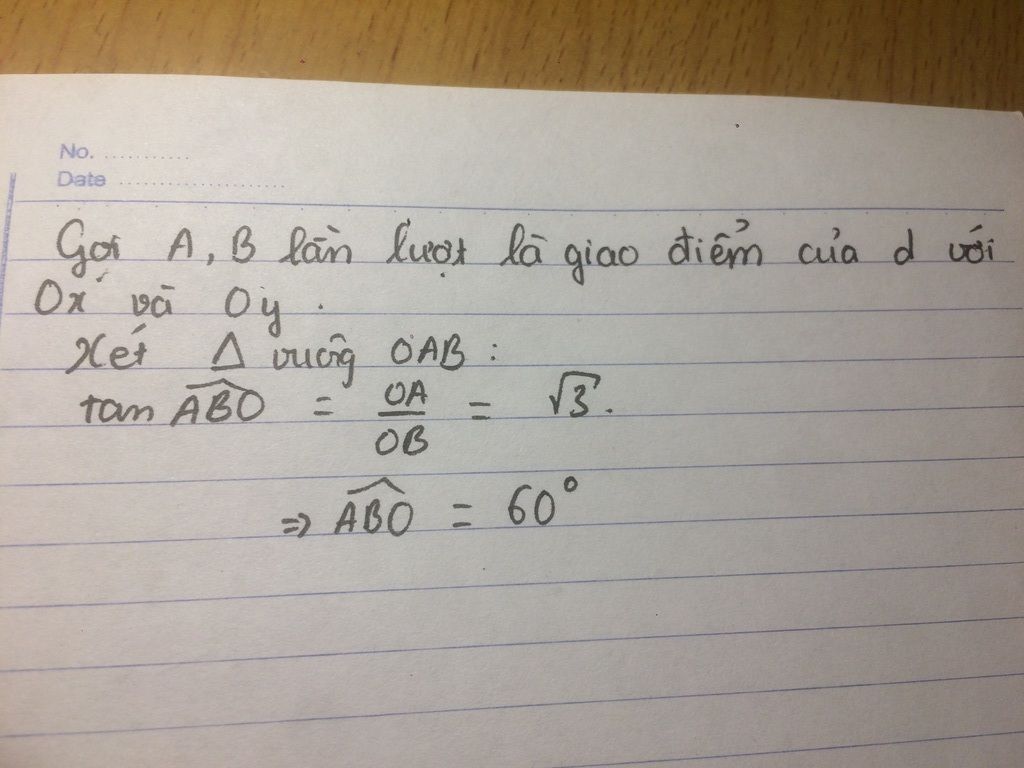 No. ............
Date .......................
Gọi A, B lần lượt là giao điểm của d với
Ox và Oy.
Xét Δ vuông OAB:
tan \widehat{ABO} = \frac{OA}{OB} = \sqrt{3}.
⇒ \widehat{ABO} = 60°